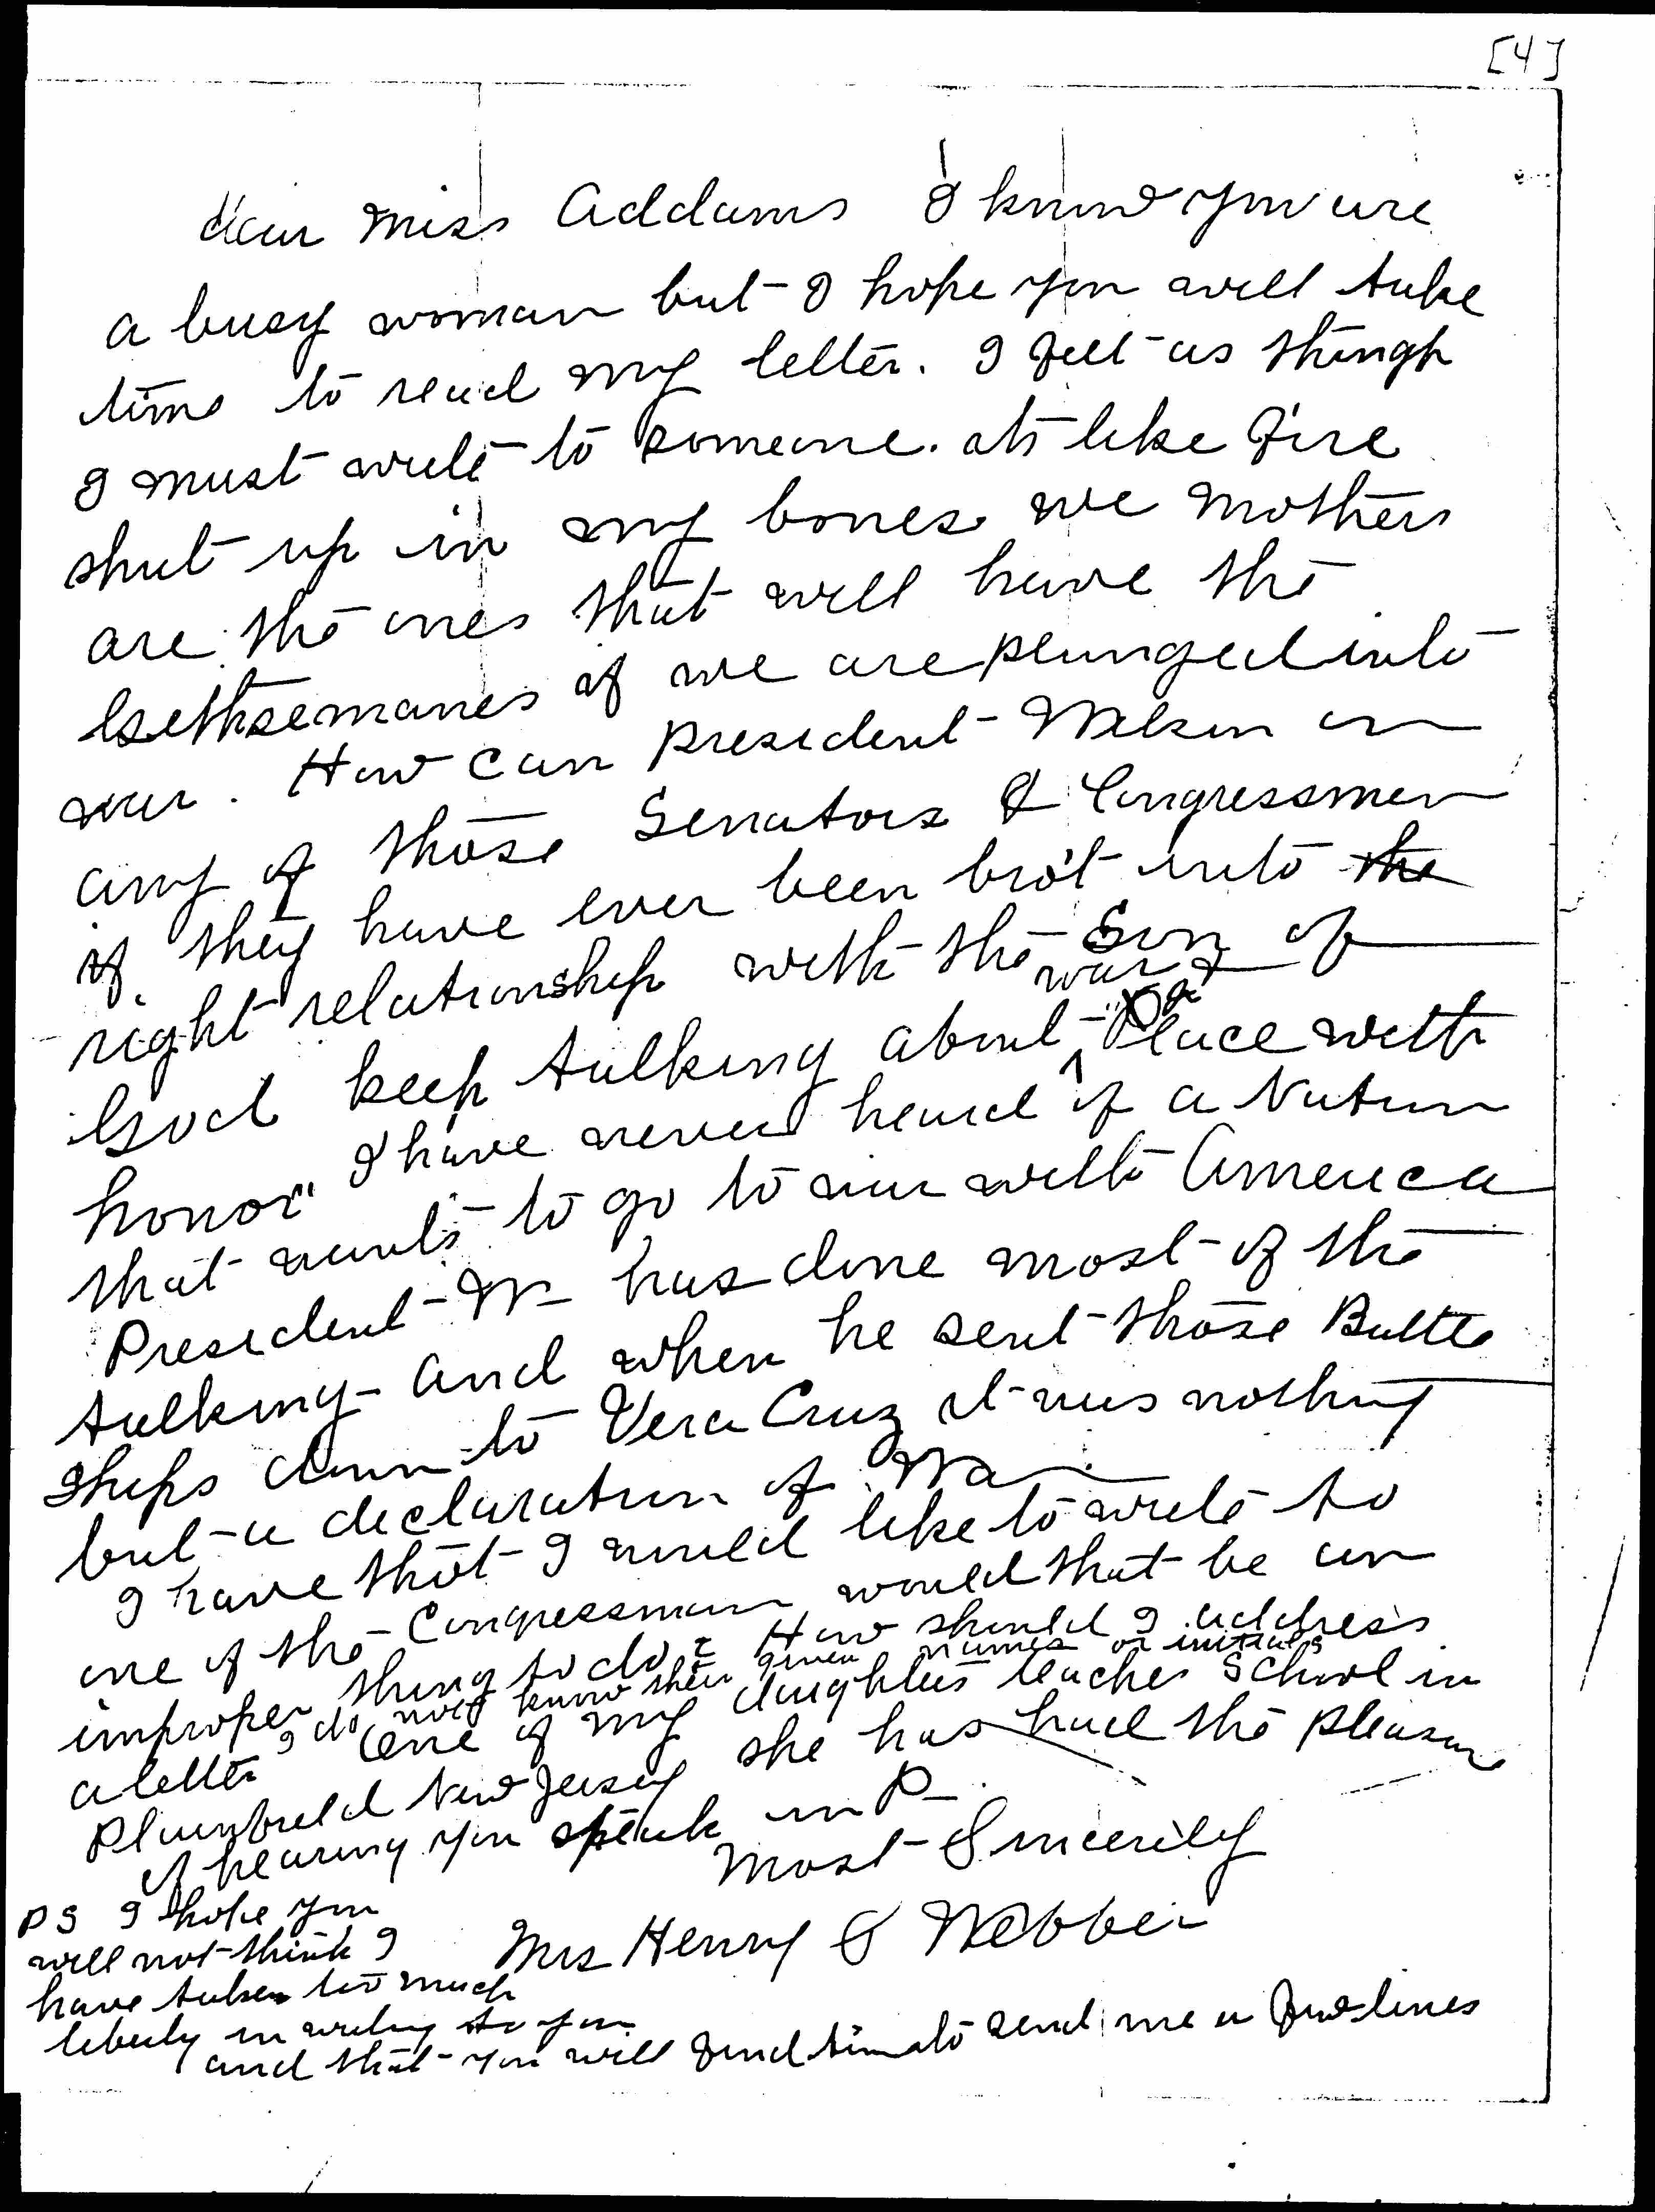 [4]
dear Miss Addams I know you are
a busy woman but I hope you will take
time to read my letter. I felt as though
I must write to someone. its like fire
shut up in my bones we mothers
are the ones that will have the
Gethsemanes if we are plunged into
war. How can president Wilson or
any of those Senators & Congressmen
if they have ever been bro't into the
right relationship with the Son of
God keep talking about war & "Peace with
honor" I have never heard of a Nation
that wants to go to war with America
President W- has done most of the
talking- and when he sent those Battle
ships down to Vera Cruz it was nothing
but a declaration of War
I have thot I would like to write to
one of the Congressman would that be an
improper thing to do? How should I address
a letter I do not know their given names or initials
One of my daughters teaches School in
Plainfield New Jersey she has had the pleasure
of hearing you speak in P-
Most Sincerely
Mrs Henry S Webber
PS I hope you
will not think I
have taken too much
liberty in writing to you
and that you will find time to send me a few lines